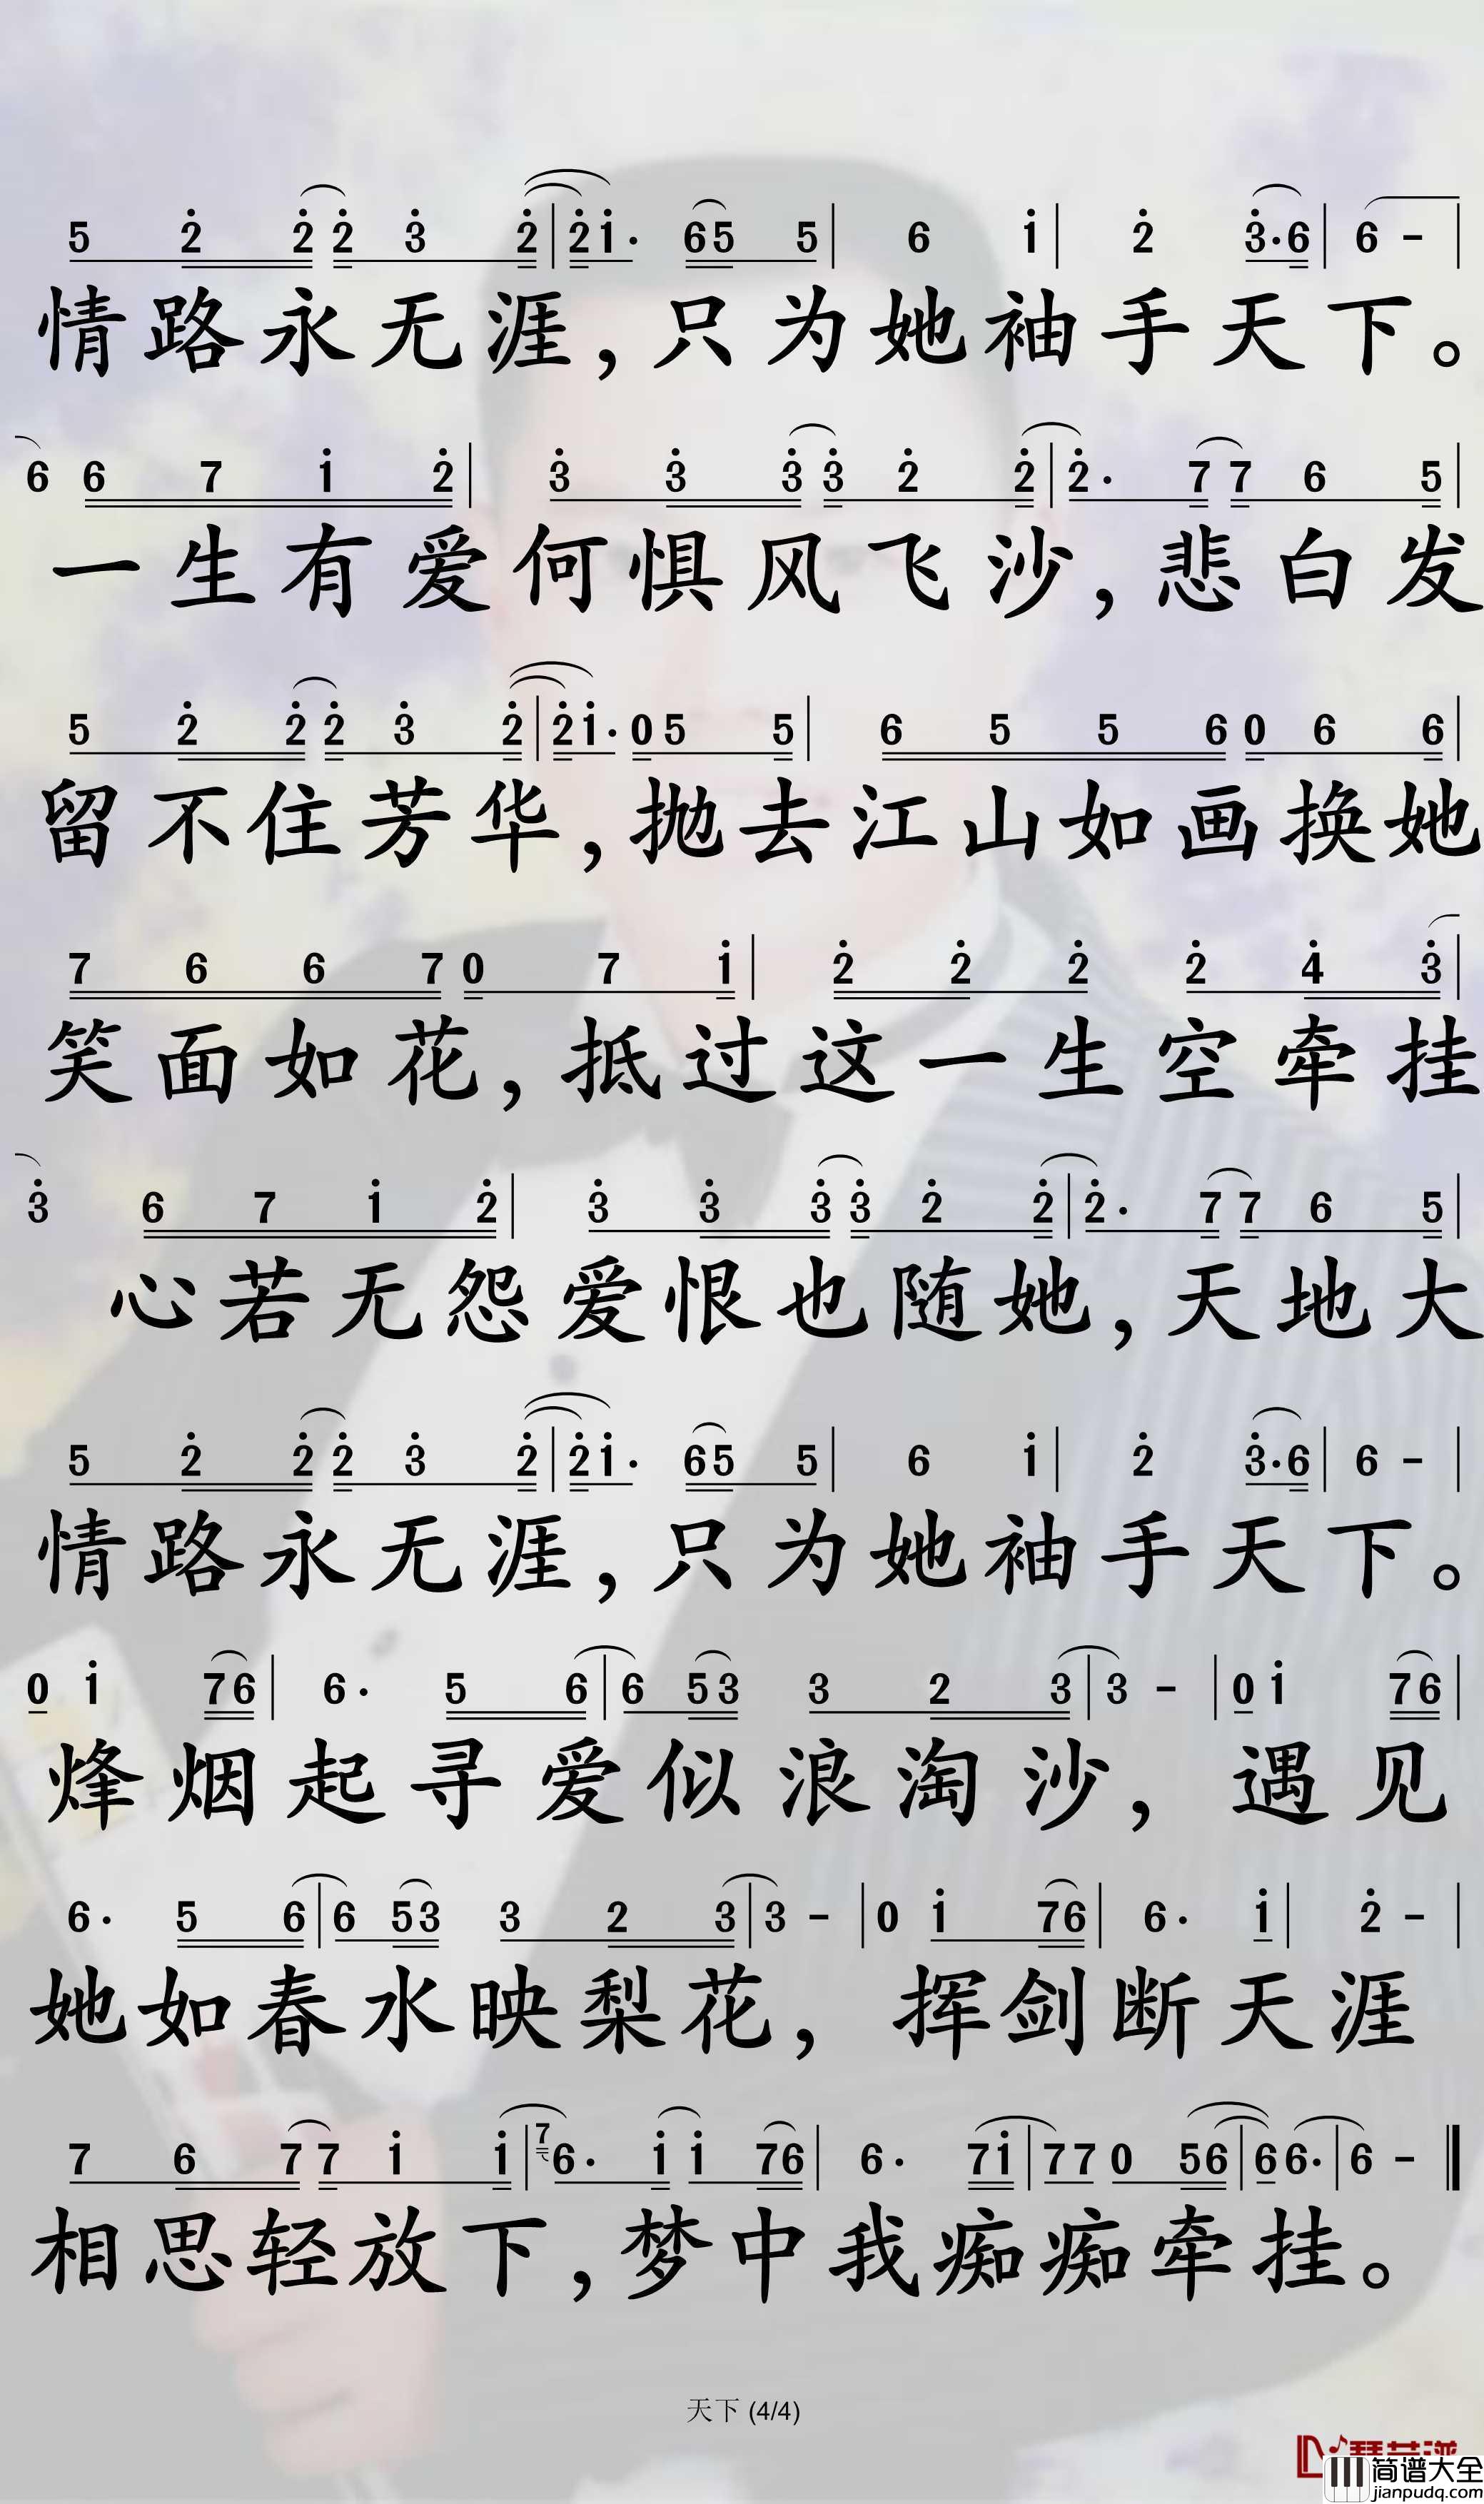 5 2 2 2 3 2 | 2 1· 6 5 5 | 6 1 | 2 3·6 | 6 - |
情路永无涯，只为她袖手天下。
6 6 7 1 2 | 3 3 3 3 2 2 | 2· 7 7 6 5 |
一生有爱何惧风飞沙，悲白发
5 2 2 2 3 2 | 2 1· 0 5 5 | 6 5 5 6 0 6 6 |
留不住芳华，抛去江山如画换她
7 6 6 7 0 7 1 | 2 2 2 2 4 3 |
笑面如花，抵过这一生空牵挂
3 6 7 1 2 | 3 3 3 3 2 2 | 2· 7 7 6 5 |
心若无怨爱恨也随她，天地大
5 2 2 2 3 2 | 2 1· 6 5 5 | 6 1 | 2 3·6 | 6 - |
情路永无涯，只为她袖手天下。
0 1 7 6 | 6· 5 6 | 6 5 3 3 2 3 | 3 - | 0 1 7 6 |
烽烟起寻爱似浪淘沙，遇见
6· 5 6 | 6 5 3 3 2 3 | 3 - | 0 1 7 6 | 6· 1 | 2 - |
她如春水映梨花，挥剑断天涯
7 6 7 7 1 1 | 7 6· 1 1 7 6 | 6· 7 1 | 7 7 0 5 6 | 6 6· | 6 - ||
相思轻放下，梦中我痴痴牵挂。
天下 (4/4)
简谱大全
jianpudq.com